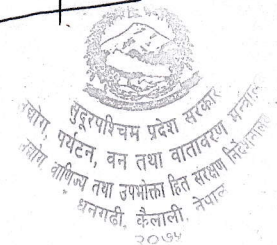 सुदूरपश्चिम प्रदेश सरकार
उद्योग, पर्यटन, वन तथा वातावरण मन्त्रालय
उद्योग, वाणिज्य तथा उपभोक्ता हित संरक्षण निर्देशनालय
धनगढी, कैलाली, नेपाल
२०७५